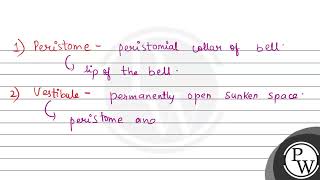 1) Peristome - peristomial collar of bell.
lip of the bell.
2) Vestibule - permanently open sunken space.
peristome ano
PW